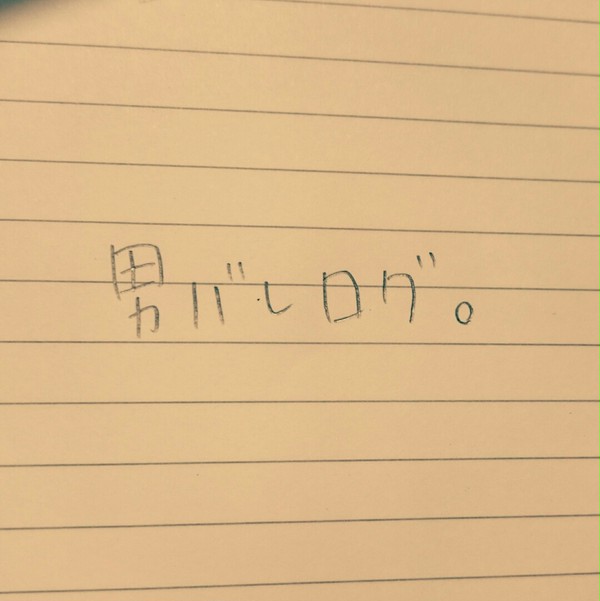 男バレログ。